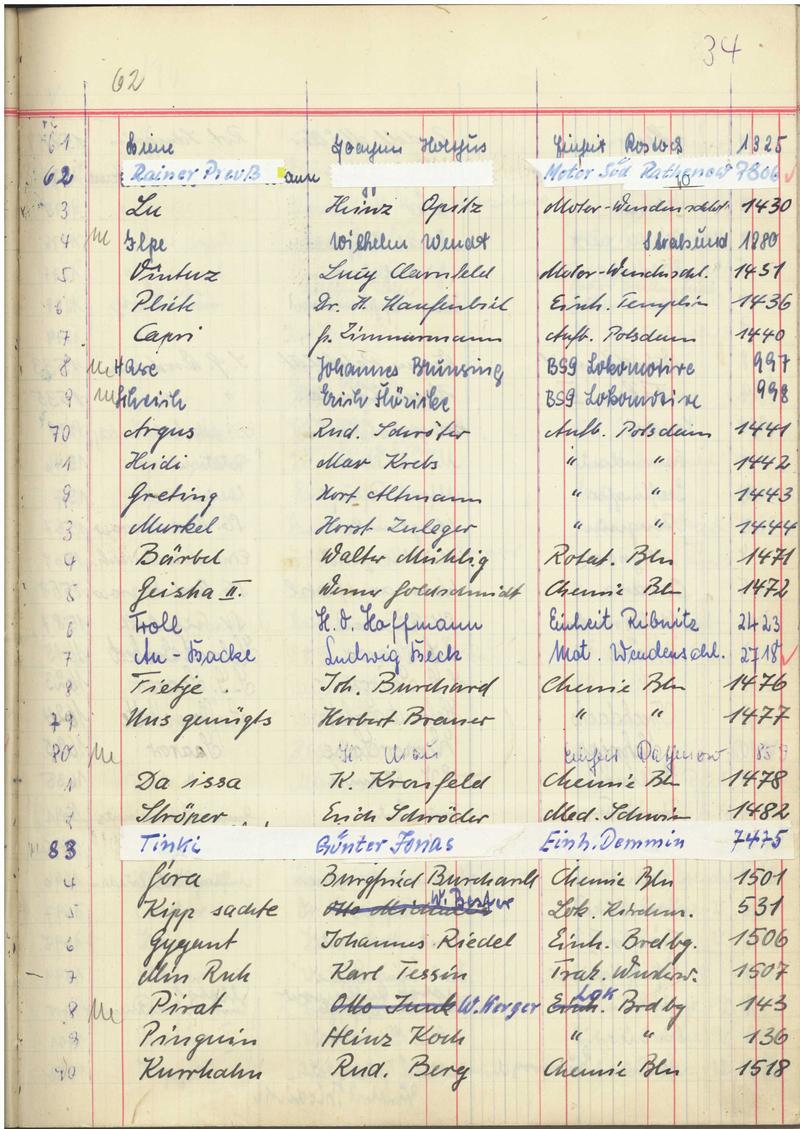 34
62
61 Liene Joachim Einheit Rostock 1325
62 Rainer Preuß Motor Süd Rathenow 7806
3 Lu Heinz Opitz Motor-Wendenschl. 1430
4 Ilse Wilhelm Wendt Stralsund 1880
5 Lucy Clarnfeld Motor-Wendenschl. 1431
6 Plick Dr. H. Einh. Templin 1436
7 Capri Zimmermann Aufb. Potsdam 1440
8 Hase Johannes Brünsing BSG Lokomotive 997
9 Scheich Erich BSG Lokomotive 998
70 Argus Rud. Schröter Aufb. Potsdam 1441
1 Heidi Max Krebs " " 1442
2 Greting Altmann " " 1443
3 Murkel Horst Zuleger " " 1444
4 Bärbel Walter Mühlig Rotat. Bln 1471
5 Geisha II. Werner Goldschmidt Chemie Bln 1472
6 Troll H.D. Hoffmann Einheit Ribnitz 2423
7 An-Backe Ludwig Beck Mot. Wendenschl. 2718
8 Tietje. Joh. Burchard Chemie Bln 1476
79 Uns genügts Herbert Brauer " " 1477
80 Einheit Rathenow
1 Da issa K. Kronfeld Chemie Bln 1478
2 Ströper Erich Schröder Med. Schwerin 1482
83 Tinki Günter Jonas Einh. Demmin 7475
4 Göra Burgfried Burchardt Chemie Bln 1501
5 Kipp sachte Otto W. Lok. 531
6 Gygant Johannes Riedel Einh. Brdbg. 1506
7 Min Ruh Karl Tessin 1507
8 Pirat Otto Junk W. Herger Einh. Lok Brdbg 143
9 Pinguin Heinz Koch " " 136
90 Kurrhahn Rud. Berg Chemie Bln 1518